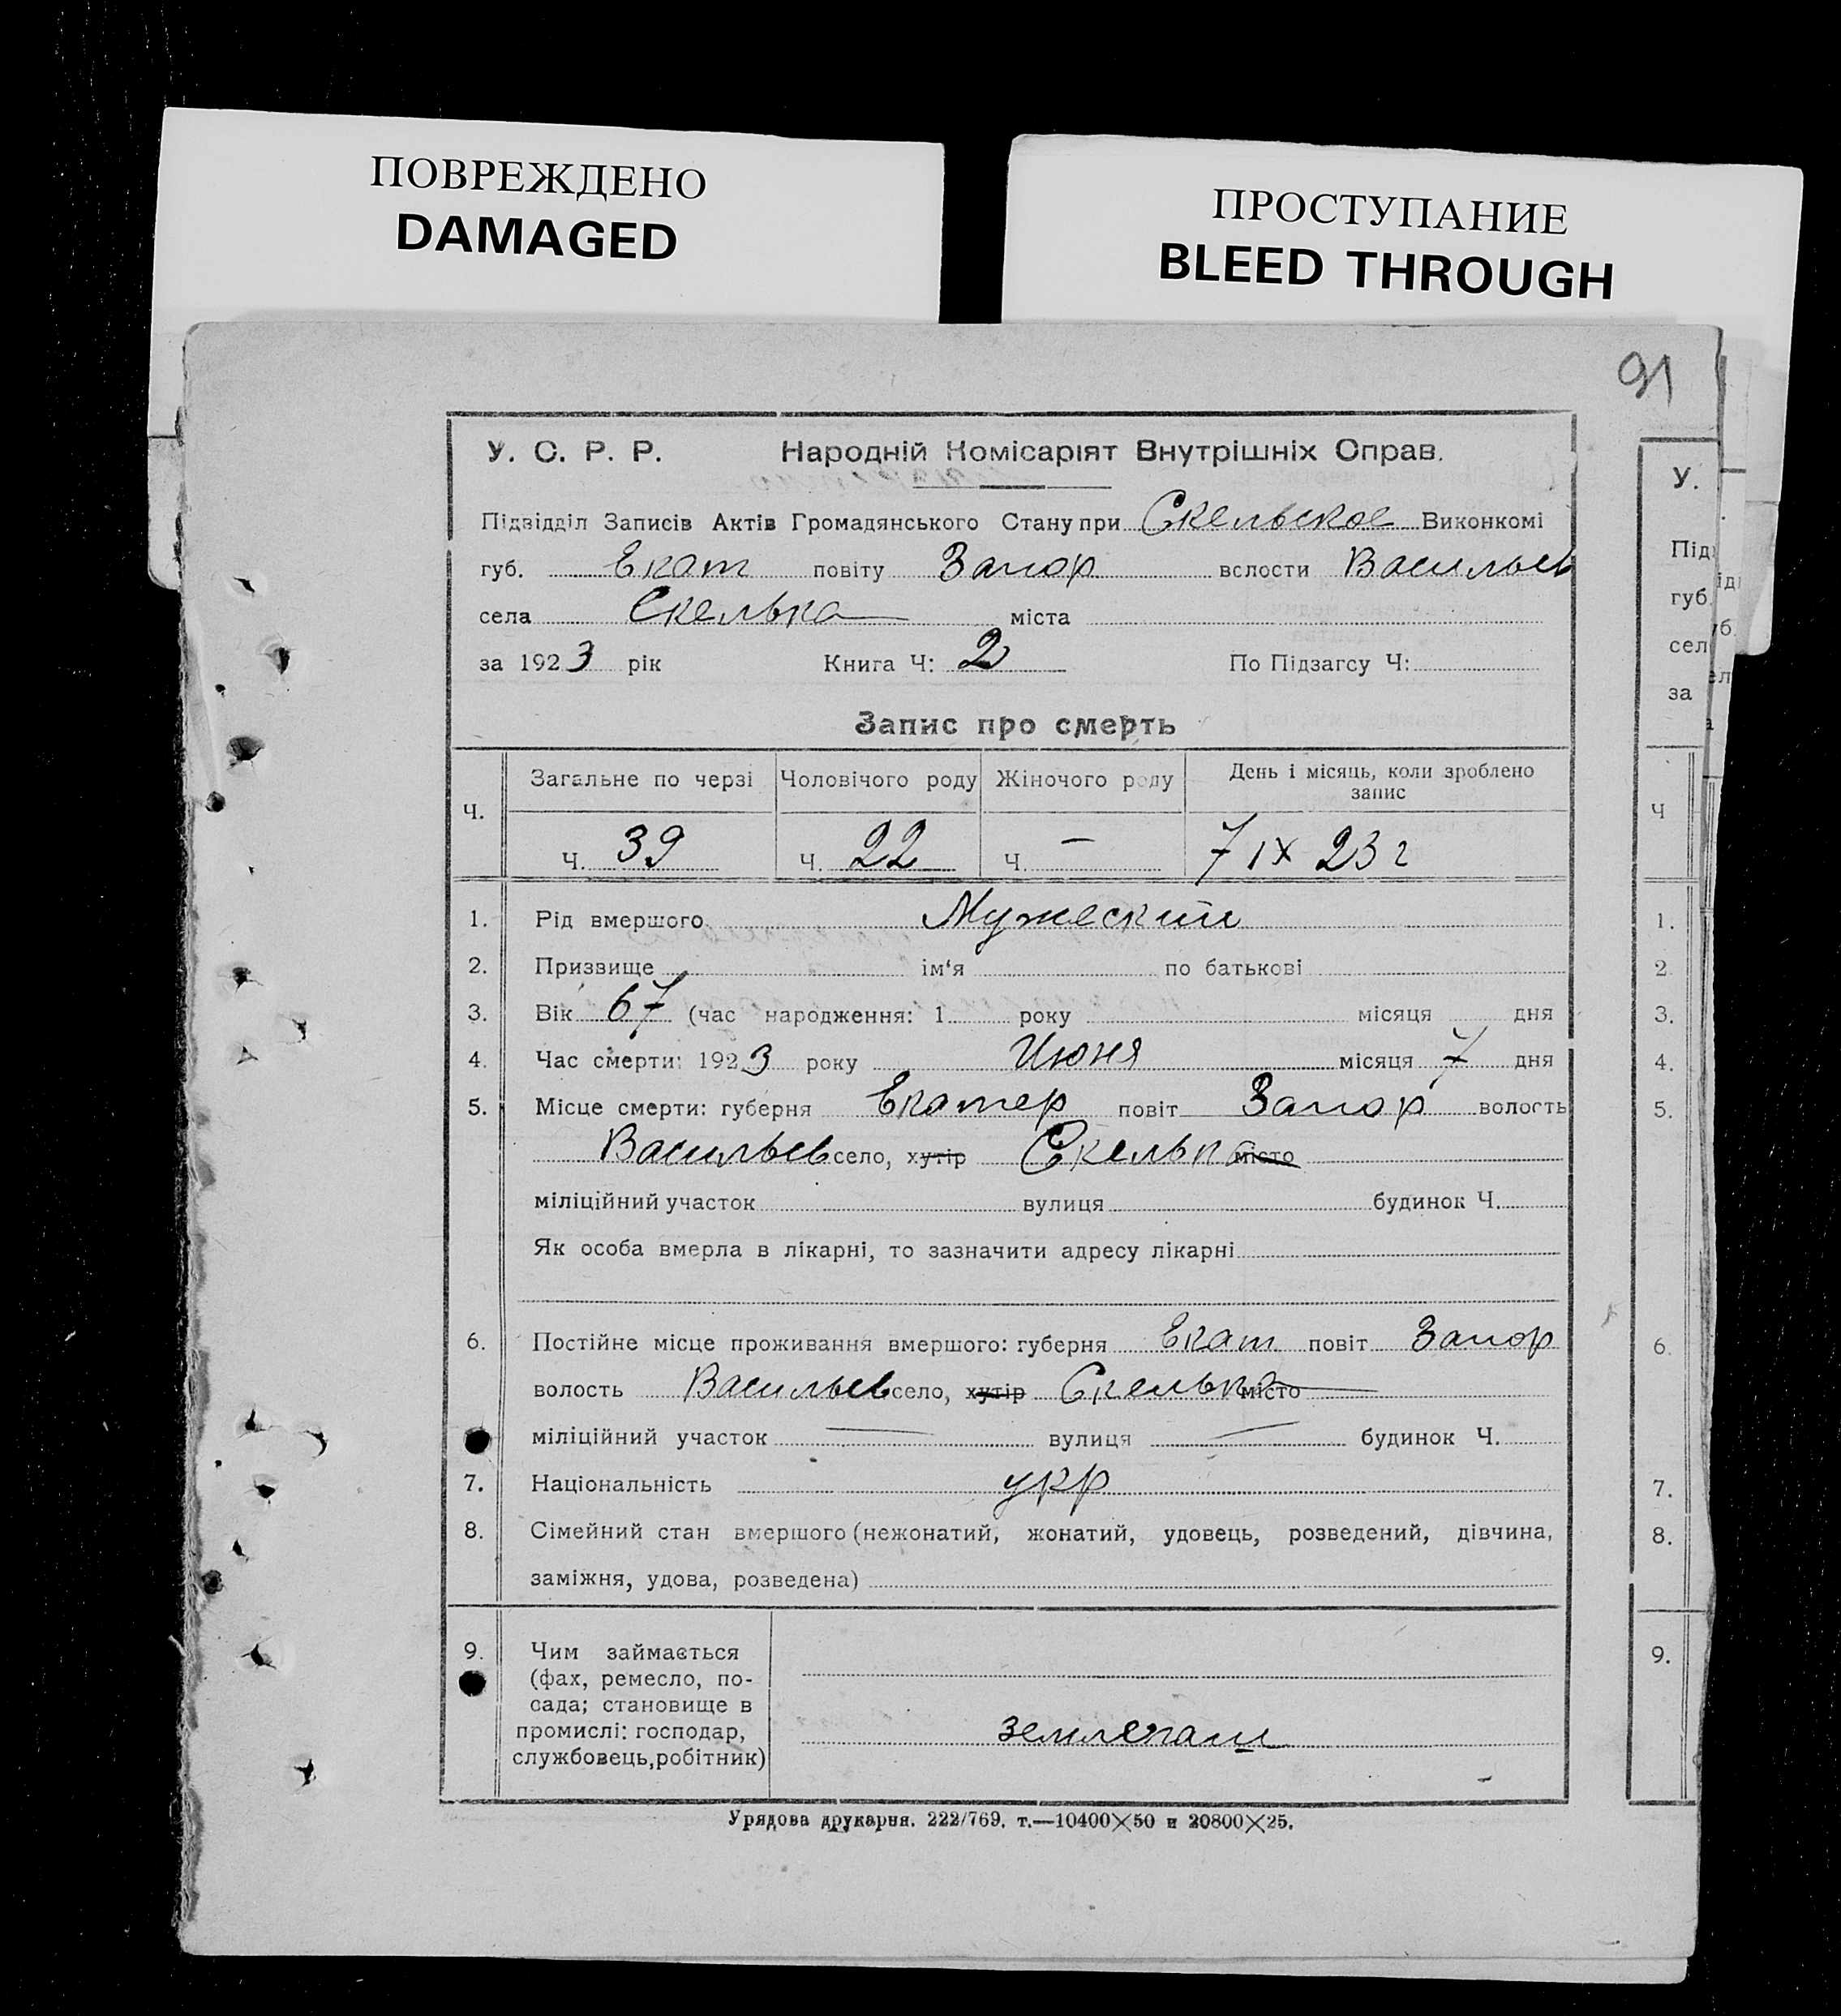 ПОВРЕЖДЕНО
DAMAGED
ПРОСТУПАНИЕ
BLEED THROUGH
91
У. С. Р. Р. Народній Комісаріят Внутрішніх Справ.
Підвідділ Записів Актів Громадянського Стану при Скельское Виконкомі
губ. Екат повіту Запор вслости Васильев
села Скелька міста
за 1923 рік Книга Ч: 2 По Підзагсу Ч:
Запис про смерть
Ч. Загальне по черзі Чоловічого роду Жіночого роду День і місяць, коли зроблено
запис
Ч. 39 Ч. 22 Ч. — 7 IX 23 г
1. Рід вмершого Мужеский
2. Призвище ім‘я по батькові
3. Вік 67 (час народження: 1 року місяця дня
4. Час смерти: 1923 року Июня місяця 7 дня
5. Місце смерти: губерня Екатер повіт Запор волость
Васильев село, хутір Скелька місто
міліційний участок вулиця будинок Ч.
Як особа вмерла в лікарні, то зазначити адресу лікарні
6. Постійне місце проживання вмершого: губерня Екат повіт Запор
волость Васильев село, хутір Скелька місто
міліційний участок — вулиця — будинок Ч.
7. Національність укр
8. Сімейний стан вмершого (нежонатий, жонатий, удовець, розведений, дівчина,
заміжня, удова, розведена)
9. Чим займається
(фах, ремесло, по-
сада; становище в
промислі: господар,
службовець, робітник)
землепаш
Урядова друкарня. 222/769. т.—10400×50 и 20800×25.
У.
Під
губ.
сел
за
Ч
1.
2
3.
4.
5.
6.
7.
8.
9.